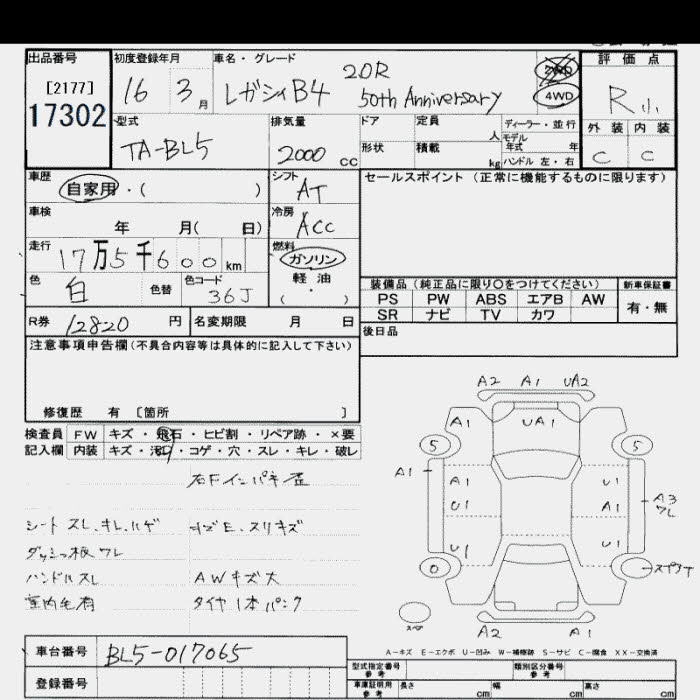 出品番号 初度登録年月 車名・グレード 評価点
[2177] 16 3 月 レガシィB4 20R 2WD 4WD R 小
17302 50th Anniversary
型式 排気量 ドア 定員 人 ディーラー・並行 外装 内装
TA-BL5 2000 cc 形状 積載 kg モデル年式 年 ハンドル 左・右 C C
車歴 自家用・( ) シフト AT セールスポイント (正常に機能するものに限ります)
車検 年 月( 日) 冷房 ACC
走行 17万5千600 km 燃料 ガソリン
色 白 色替 色コード 36J 軽油 ・( ) 装備品 (純正品に限り○をつけてください) 新車保証書
PS PW ABS エアB AW 有・無
R券 12820 円 名変期限 月 日 SR ナビ TV カワ
注意事項申告欄(不具合内容等は具体的に記入して下さい) 後日品
修復歴 有 [箇所 ]
検査員 FW キズ・飛石・ヒビ割・リペア跡・×要
記入欄 内装 キズ・汚れ・コゲ・穴・スレ・キレ・破レ
A2 A1 UA2
A1 UA1
5 5
A1 A1 U1 A3 ワレ
U1 A1
U1 U1
0
スペア
A2 A1
右Fインパネ歪
シート スレ、キレ、ハゲ キズE、スリキズ
ダッシュ板 ワレ
ハンドルスレ AWキズ大
室内毛有 タイヤ1本パンク
A-キズ E-エクボ U-凹み W-補修跡 S-サビ C-腐食 XX-交換済
車台番号 BL5-017065
型式指定番号 参考 類別区分番号 参考
登録番号 車庫証明用 参考 長さ cm 幅 cm 高さ cm